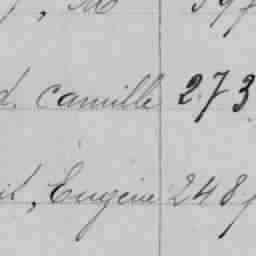 , M 397
d. Camille 273
it, Eugène 248